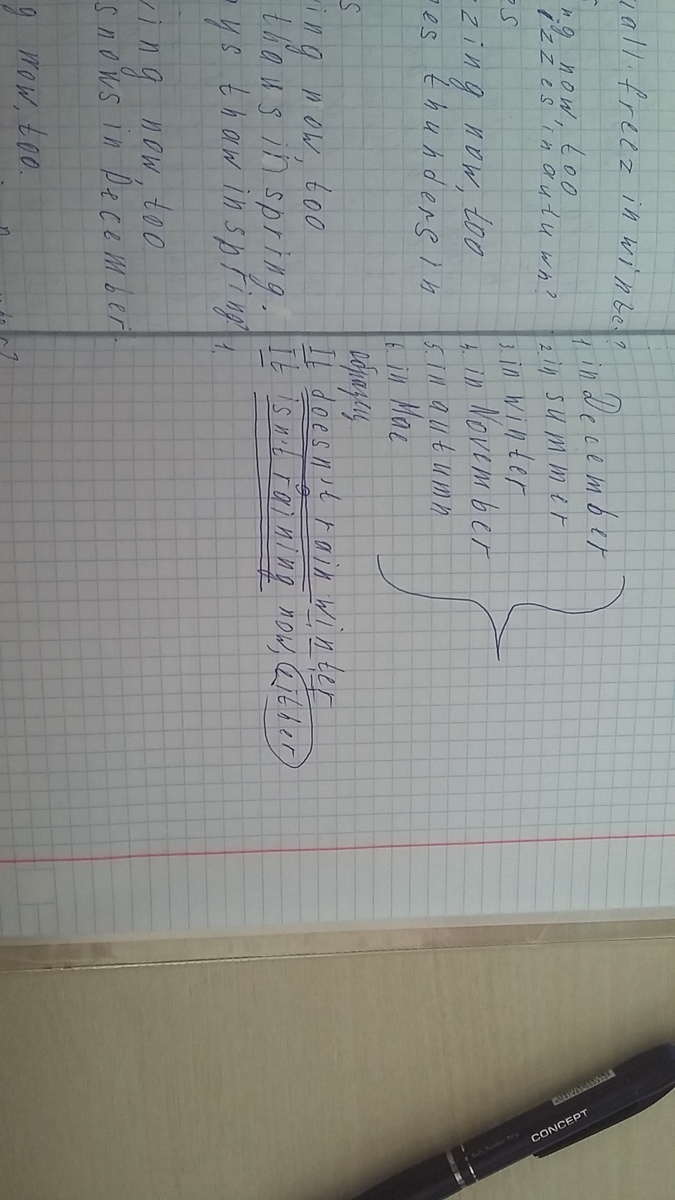 in winte.?
ng now, too
izzes in autumn?
es
zing now, too
es thunders in
s
ing now, too
thaws in spring.
ays thaw in spring?
ing now, too
snows in December.
g now, too.
1 in December
2. in summer
3. in winter
4. in November
5. in autumn
6. in Mae
образец
It doesn't rain winter
It isn't raining now, either
1.
CONCEPT